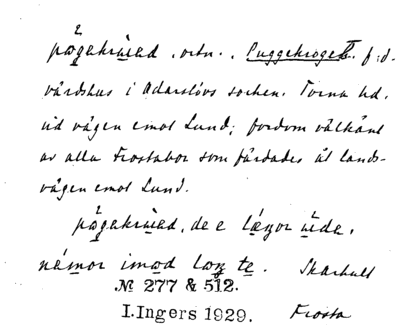 pǫgakrùəd, ortn. Puggekroget f.d.
värdshus i Odarslövs socken. Torna hd.
vid vägen emot Lund; fordom välkänt
av alla Frostabor som färdades åt lands-
vägen emot Lund.
pǫgakrùəd, de e læŋor ùde,
némor imod loŋ te. Skarhult
№ 277 & 512.
I.Ingers 1929. Frosta